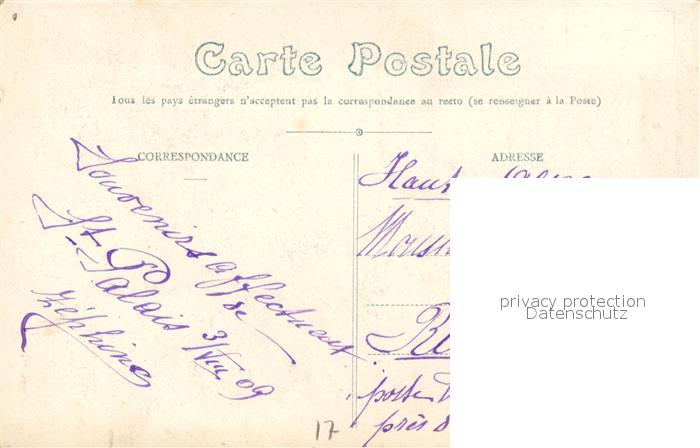 Carte Postale
Tous les pays étrangers n'acceptent pas la correspondance au recto (se renseigner à la Poste)
CORRESPONDANCE
ADRESSE
Souvenirs affectueux
de
St-Palais
3/VIII 09
Zéphine
Haut
privacy protection
Datenschutz
poste
près d
17